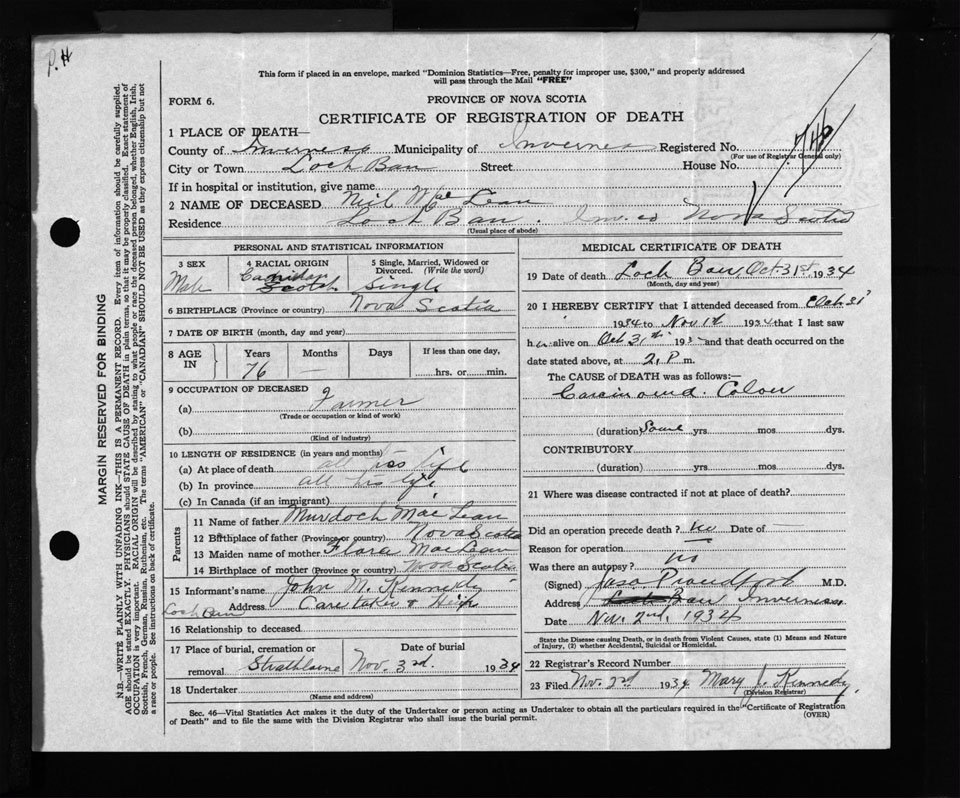 P.H
This form if placed in an envelope, marked "Dominion Statistics—Free, penalty for improper use, $300," and properly addressed
will pass through the Mail "FREE"
FORM 6.
PROVINCE OF NOVA SCOTIA
CERTIFICATE OF REGISTRATION OF DEATH
1 PLACE OF DEATH—
County of Inverness Municipality of Inverness Registered No.
(For use of Registrar General only)
City or Town Loch Ban Street House No.
If in hospital or institution, give name
2 NAME OF DECEASED Neil MacLean
Residence Loch Ban. Inv. co Nova Scotia
(Usual place of abode)
PERSONAL AND STATISTICAL INFORMATION
3 SEX
Male
4 RACIAL ORIGIN
Scotch
5 Single, Married, Widowed or
Divorced. (Write the word)
Single
6 BIRTHPLACE (Province or country) Nova Scotia
7 DATE OF BIRTH (month, day and year)
8 AGE
IN
Years
76
Months
—
Days
If less than one day,
hrs. or min.
9 OCCUPATION OF DECEASED
(a) Farmer
(Trade or occupation or kind of work)
(b)
(Kind of industry)
10 LENGTH OF RESIDENCE (in years and months)
(a) At place of death all his life
(b) In province all his life
(c) In Canada (if an immigrant)
Parents
11 Name of father Murdoch MacLean
12 Birthplace of father (Province or country) Nova Scotia
13 Maiden name of mother Flora MacLean
14 Birthplace of mother (Province or country) Nova Scotia
15 Informant's name John M. Kennedy
Address Care taker
Loch Ban
16 Relationship to deceased
17 Place of burial, cremation or
removal Strathlorne
Date of burial
Nov. 3rd. 1934
18 Undertaker
(Name and address)
MEDICAL CERTIFICATE OF DEATH
19 Date of death Loch Ban Oct. 31st. 1934
(Month, day and year)
20 I HEREBY CERTIFY that I attended deceased from Oct 31
1934 to Nov 1st 1934 that I last saw
h alive on Oct 31st 193 and that death occurred on the
date stated above, at 2. P m.
The CAUSE of DEATH was as follows:—
Carcinoma. Colon
(duration) Some yrs. mos. dys.
CONTRIBUTORY
(duration) yrs. mos. dys.
21 Where was disease contracted if not at place of death?
Did an operation precede death? no Date of —
Reason for operation —
Was there an autopsy? no
(Signed) Jas. Proudfoot M.D.
Address Inverness
Date Nov. 2nd. 1934
State the Disease causing Death, or in death from Violent Causes, state (1) Means and Nature
of Injury, (2) whether Accidental, Suicidal or Homicidal.
22 Registrar's Record Number
23 Filed Nov. 2nd 1934 Mary J. Kennedy
(Division Registrar)
Sec. 46—Vital Statistics Act makes it the duty of the Undertaker or person acting as Undertaker to obtain all the particulars required in the "Certificate of Registration
of Death" and to file the same with the Division Registrar who shall issue the burial permit.
(OVER)
MARGIN RESERVED FOR BINDING
N.B.—WRITE PLAINLY WITH UNFADING INK—THIS IS A PERMANENT RECORD. Every item of information should be carefully supplied.
AGE should be stated EXACTLY. PHYSICIANS should STATE CAUSE OF DEATH in plain terms, so that it may be properly classified. Exact statement of
OCCUPATION is very important. RACIAL ORIGIN will be described by stating to what people or race the deceased person belonged, whether English, Irish,
Scottish, French, German, Russian, Ruthenian, etc. The terms "AMERICAN" or "CANADIAN" SHOULD NOT BE USED as they express citizenship but not
a race or people. See instructions on back of certificate.